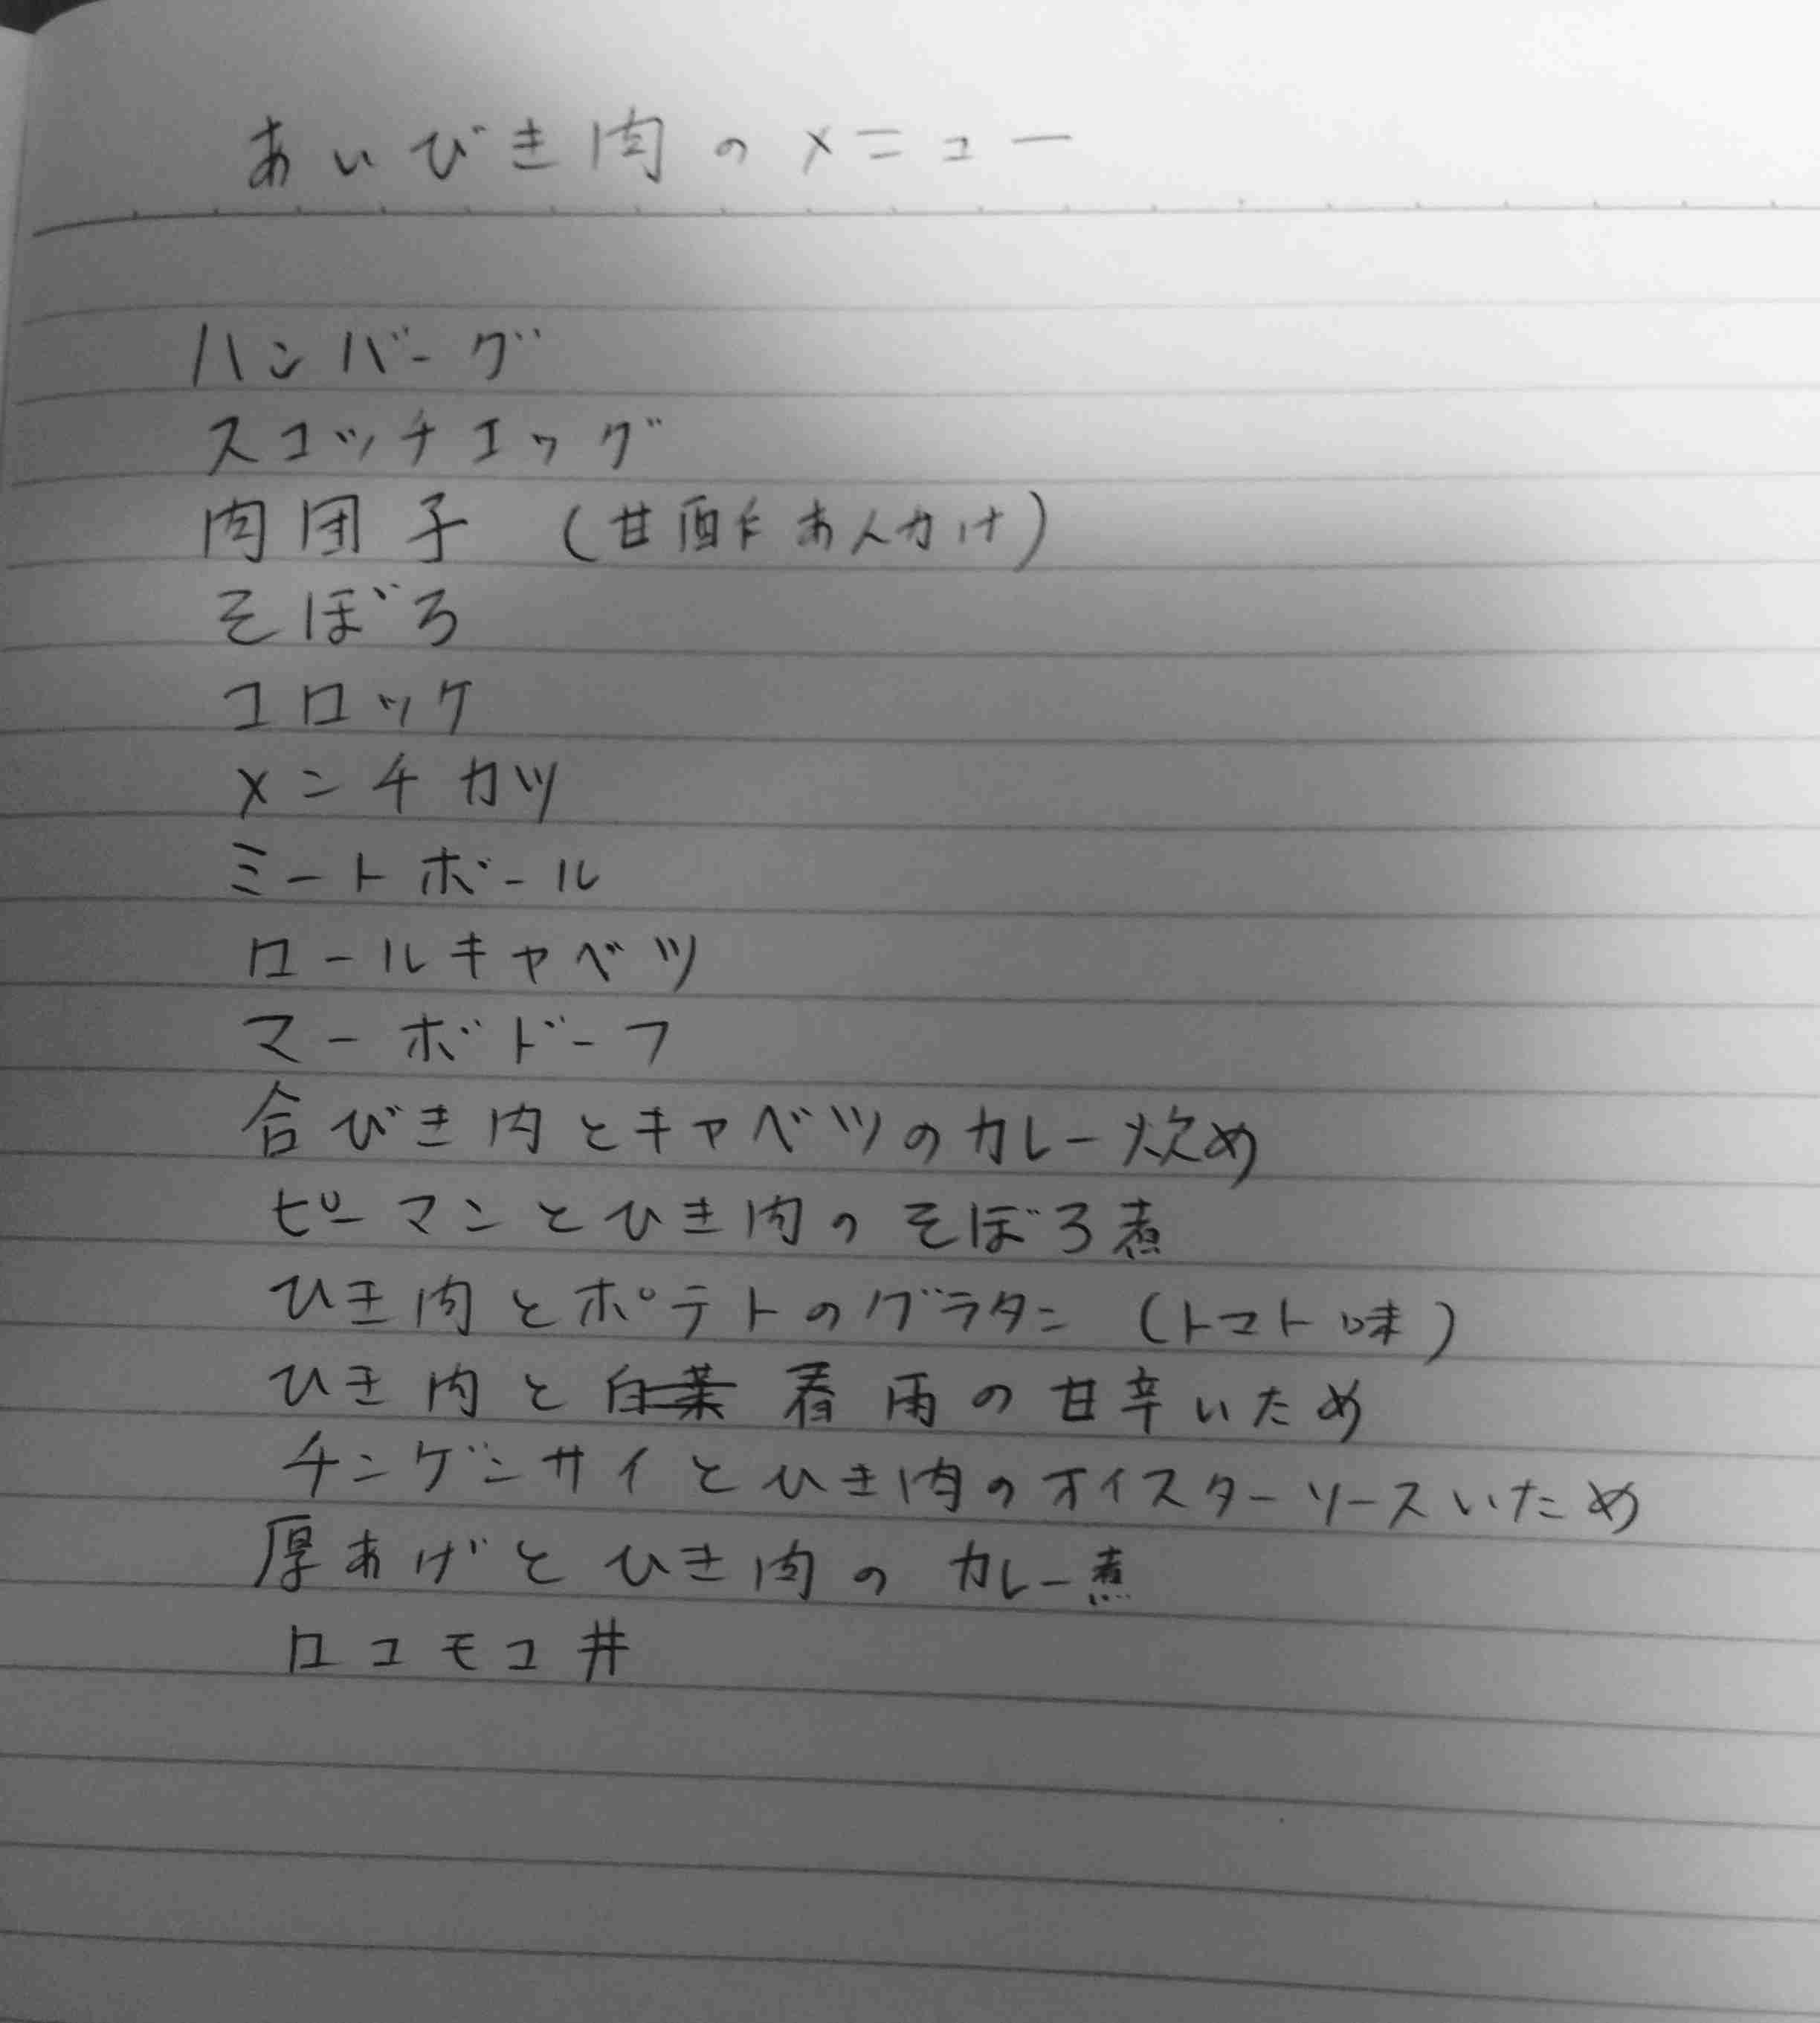 あいびき肉のメニュー
ハンバーグ
スコッチエッグ
肉団子 (甘酢あんかけ)
そぼろ
コロッケ
メンチカツ
ミートボール
ロールキャベツ
マーボドーフ
合びき肉とキャベツのカレー炊め
ピーマンとひき肉のそぼろ煮
ひき肉とポテトのグラタン (トマト味)
ひき肉と白菜 春雨の甘辛いため
チンゲンサイとひき肉のオイスターソースいため
厚あげとひき肉のカレー煮
ロコモコ丼